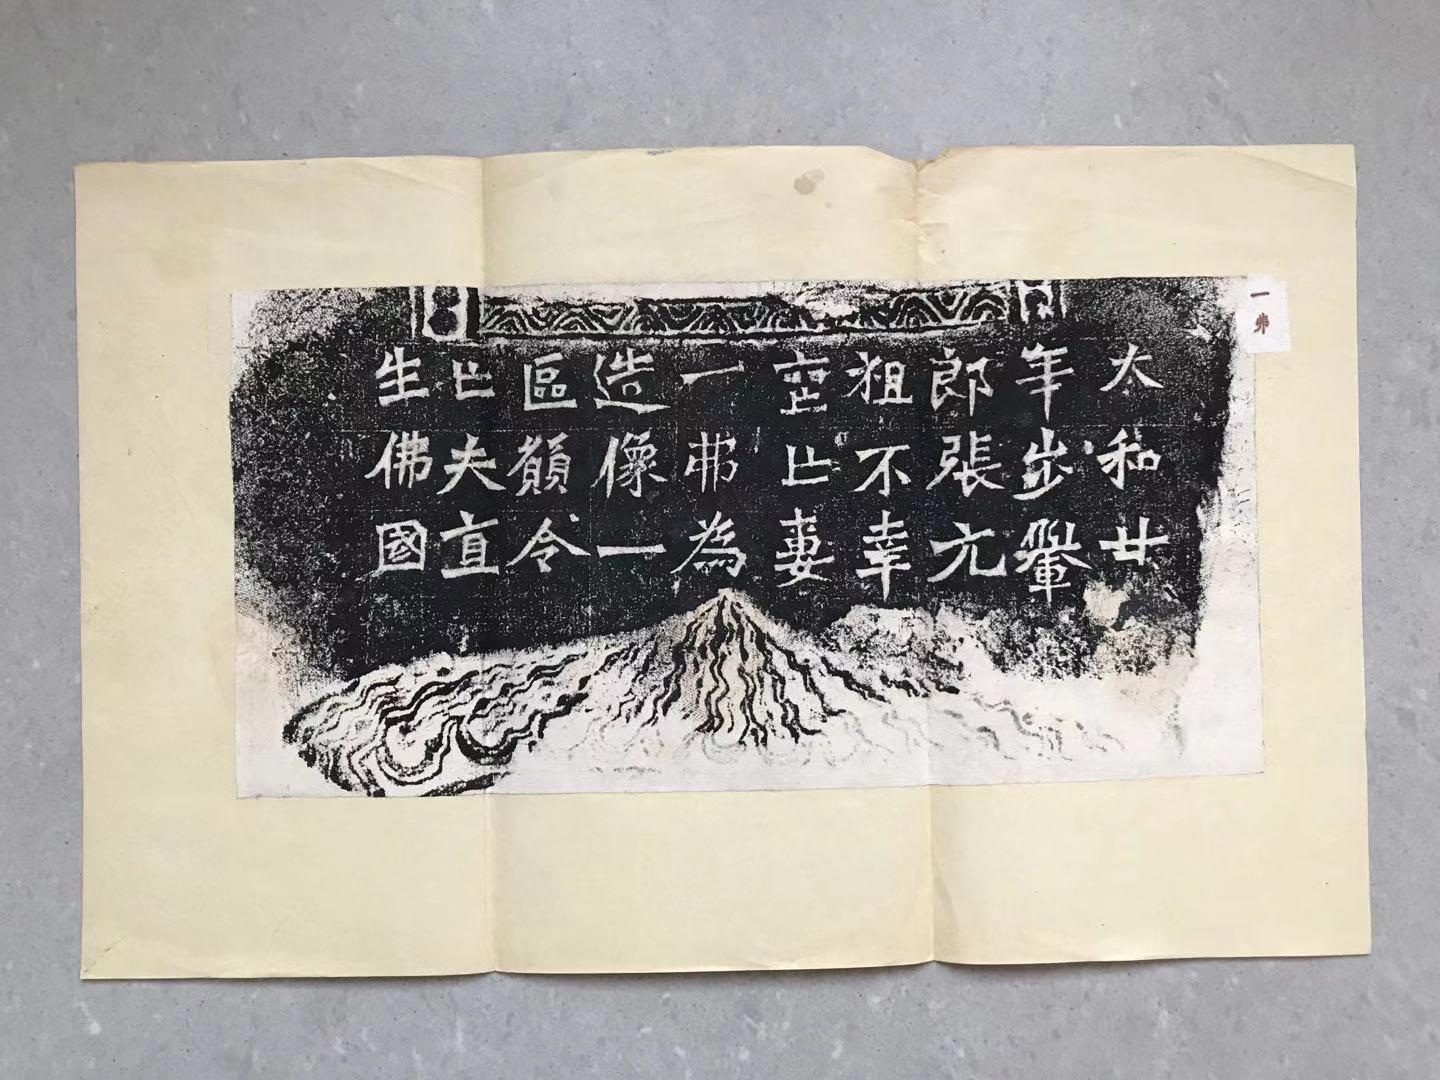 一弗
太和廿
年步轝
郎張元
祖不幸
喪亡妻
一弗為
造像一
區願令
亡夫直
生佛國